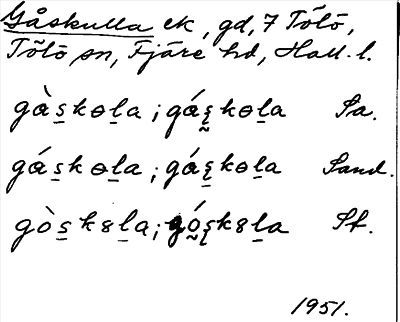 Gåskulla ek, gd, 7 Tölö,
Tölö sn, Fjäre hd, Hall. l.
gὰs̱kɵḻa ; gɑ́s̱kɵḻa Sa.
gɑ́s̱kɵḻa ; gɑ́s̱kɵḻa Sand.
gòs̱k8ḻa ; gós̱k8ḻa St.
1951.